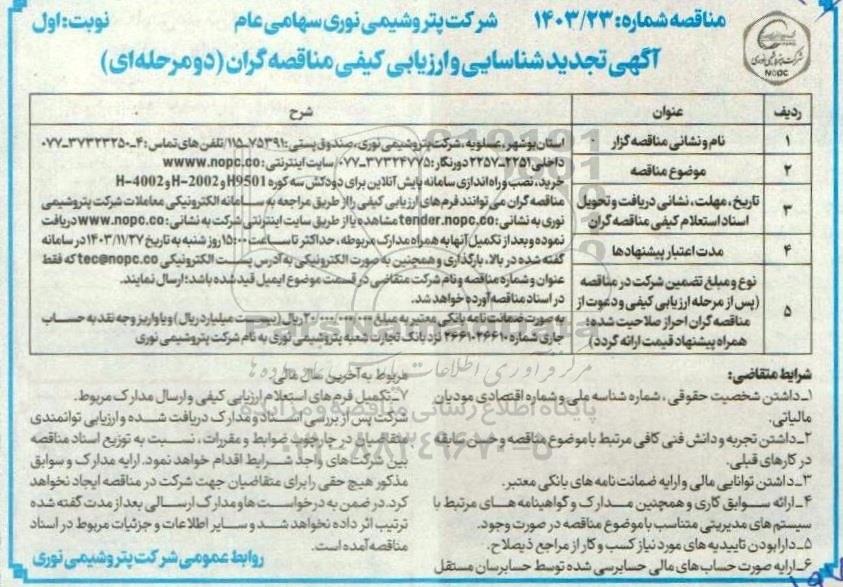 مناقصه شماره: ۱۴۰۳/۲۳ شرکت پتروشیمی نوری سهامی عام نوبت: اول
آگهی تجدید شناسایی و ارزیابی کیفی مناقصه گران (دو مرحله ای)
NOPC
ردیف عنوان شرح
۱ نام و نشانی مناقصه گزار
استان بوشهر، عسلویه، شرکت پتروشیمی نوری، صندوق پستی: ۷۵۳۹۱-۱۱۵/ تلفن های تماس: ۴-۳۷۳۲۳۲۵۰-۰۷۷
داخلی ۲۲۵۱-۲۲۵۷ دورنگار: ۳۷۳۲۴۷۷۵-۰۷۷/ سایت اینترنتی: wwww.nopc.co
۲ موضوع مناقصه
خرید، نصب و راه اندازی سامانه پایش آنلاین برای دودکش سه کوره H9501 و H-2002 و H-4002
۳ تاریخ، مهلت، نشانی دریافت و تحویل
اسناد استعلام کیفی مناقصه گران
مناقصه گران می توانند فرم های ارزیابی کیفی را از طریق مراجعه به سامانه الکترونیکی معاملات شرکت پتروشیمی
نوری به نشانی: tender.nopc.co مشاهده یا از طریق سایت اینترنتی شرکت به نشانی: www.nopc.co دریافت
نموده و بعد از تکمیل آنها به همراه مدارک مربوطه، حداکثر تا ساعت ۱۵:۰۰ روز شنبه به تاریخ ۱۴۰۳/۱۱/۲۷ در سامانه
گفته شده در بالا، بارگذاری و همچنین به صورت الکترونیکی به آدرس پست الکترونیکی tec@nopc.co که فقط
عنوان و شماره مناقصه و نام شرکت متقاضی در قسمت موضوع ایمیل قید شده باشد؛ ارسال نمایند.
۴ مدت اعتبار پیشنهادها
در اسناد مناقصه آورده خواهد شد.
۵ نوع و مبلغ تضمین شرکت در مناقصه
(پس از مرحله ارزیابی کیفی و دعوت از
مناقصه گران احراز صلاحیت شده؛
همراه پیشنهاد قیمت ارائه گردد)
به صورت ضمانت نامه بانکی معتبر به مبلغ ۲۰/۰۰۰/۰۰۰/۰۰۰ ریال (بیست میلیارد ریال) و یا واریز وجه نقد به حساب
جاری شماره ۲۶۶۱۰۲۶۶۱۰ نزد بانک تجارت شعبه پتروشیمی نوری به نام شرکت پتروشیمی نوری
شرایط متقاضی:
۱-داشتن شخصیت حقوقی، شماره شناسه ملی و شماره اقتصادی مودیان
مالیاتی.
۲-داشتن تجربه و دانش فنی کافی مرتبط با موضوع مناقصه و حسن سابقه
در کارهای قبلی.
۳-داشتن توانایی مالی و ارایه ضمانت نامه های بانکی معتبر.
۴-ارائه سوابق کاری و همچنین مدارک و گواهینامه های مرتبط با
سیستم های مدیریتی متناسب با موضوع مناقصه در صورت وجود.
۵-دارا بودن تاییدیه های مورد نیاز کسب و کار از مراجع ذیصلاح.
۶-ارایه صورت حساب های مالی حسابرسی شده توسط حسابرسان مستقل
مربوط به آخرین سال مالی.
۷-تکمیل فرم های استعلام ارزیابی کیفی و ارسال مدارک مربوط.
شرکت پس از بررسی اسناد و مدارک دریافت شده و ارزیابی توانمندی
متقاضیان در چارچوب ضوابط و مقررات، نسبت به توزیع اسناد مناقصه
بین شرکت های واجد شرایط اقدام خواهد نمود. ارایه مدارک و سوابق
مذکور هیچ حقی را برای متقاضیان جهت شرکت در مناقصه ایجاد نخواهد
کرد. در ضمن به درخواست ها و مدارک ارسالی بعد از مدت گفته شده
ترتیب اثر داده نخواهد شد و سایر اطلاعات و جزئیات مربوط در اسناد
مناقصه آمده است.
روابط عمومی شرکت پتروشیمی نوری
ParsNamadData
پایگاه اطلاع رسانی مناقصه و مزایده
۰۲۱-۸۸۳۴۹۶۷۰-۵